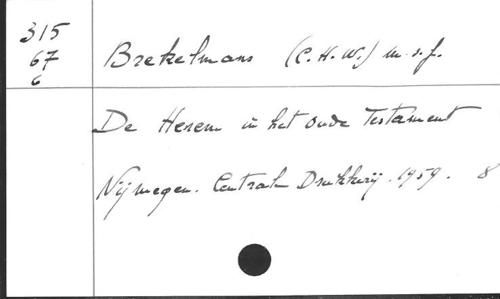 315
67
6
Brekelmans (C.H.W.) m.s.f.
De Herem in het oude Testament
Nijmegen. Centrale Drukkerij. 1959. 8